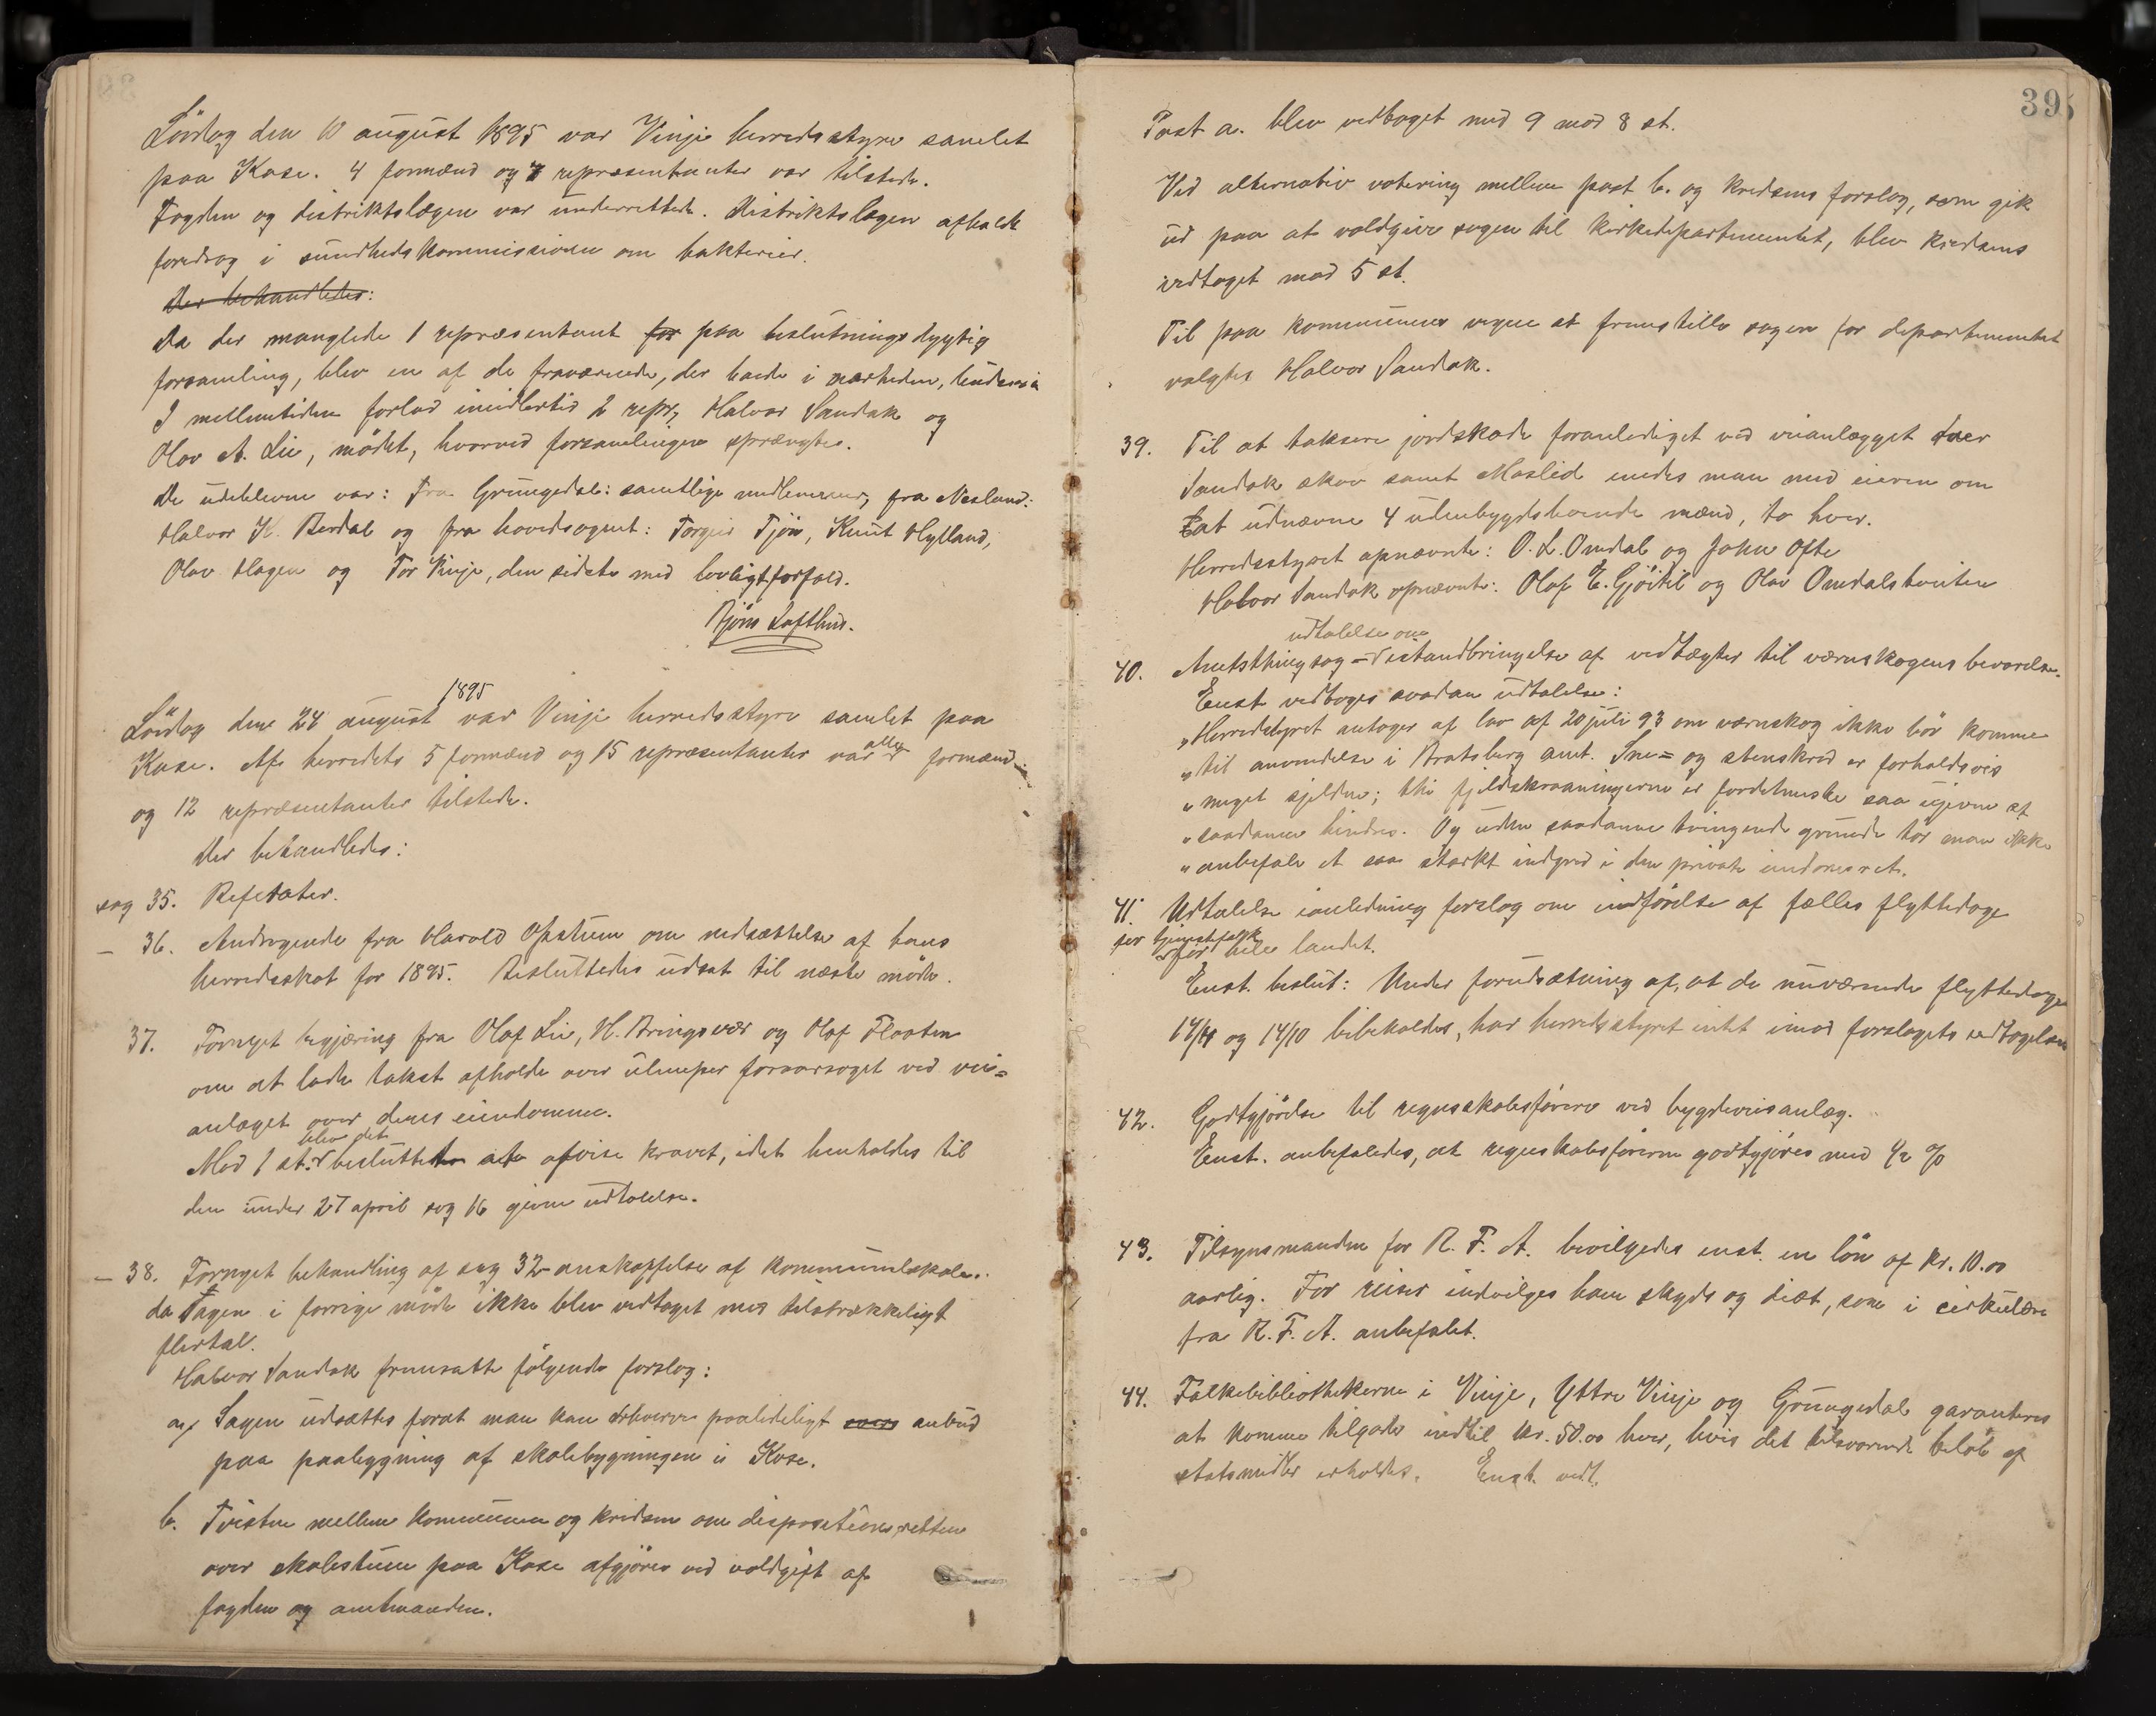 Lördag den 10 august 1895 var Vinje herredsstyre samlet
paa Kose. 4 formænd og 7 repræsentanter var tilstede.
Fogden og distriktslægen var underrettede. Distriktslægen afholdt
foredrag i sundhedskommissionen om bakterier.
Der behandledes:
Da der manglede 1 repræsentant for paa beslutningsdygtig
forsamling, blev en af de fraværende, der boede i nærheden,
I mellemtiden forlod imidlertid 2 repr, Halvor Sandok og
Olav A. Lie, mödet, hvorved forsamlingen sprængtes.
De udeblevne var: Fra Grungedal: samtlige medlemmer, fra Nesland:
Halvor K. Berdal og fra hovedsognet: Torgeir Tjön, Knut Hylland,
Olav Hagen og Tor Vinje, den sidste med lovligt forfald.
Björn Lofthus.
Lördag den 24 august 1895 var Vinje herredsstyre samlet paa
Kose. Af herredets 5 formænd og 15 repræsentanter var alle formænd
og 12 repræsentanter tilstede.
Der behandledes:
sag 35. Referater.
- 36. Andragende fra Harald Opstum om nedsættelse af hans
herredsskat for 1895. Besluttedes udsat til næste möde.
37. Fornyet begjæring fra Olaf Lie, H. Bringsvær og Olaf Flaaten
om at lade takst afholde over ulemper foraarsaget ved vei=
anlæget over deres eiendomme.
Mod 1 st. blev det besluttet at afvise kravet, idet henholdes til
den under 27 april sag 16 givne udtalelse.
- 38. Fornyet behandling af sag 32 - anskaffelse af kommunelokale.
da Sagen i forrige möde ikke blev vedtaget med tilstrækkeligt
flertal.
Halvor Sandok fremsatte fölgende forslag:
a, Sagen udsættes forat man kan erhverve paalideligt anbud
paa paabygning af skolebygningen i Kose.
b. Tvisten mellem kommunen og kredsen om dispositionsretten
over skolestuen paa Kose afgjöres ved voldgift af
fogden og amtmanden.
39
Post a. blev vedtaget med 9 mod 8 st.
Ved alternativ votering mellem post b. og kredsens forslag, som gik
ud paa at voldgive sagen til kirkedepartementet, blev kredsens
vedtaget mod 5 st.
Til paa kommunens vegne at fremstille sagen for departementet
valgtes Halvor Sandok.
39. Til at taksere jordskade foranlediget ved veianlægget over
Sandok skov samt Moslid enedes man med eieren om
at udnævne 4 udenbygdsboende mænd, to hver.
Herredsstyret opnævnte: O. L. Omdal og John Ofte
Halvor Sandok opnævnte: Olaf E. Gjöitil og Olav Omdalskviten
udtalelse om
40. Amtsthingsag - istandbringelse af vedtægter til værnskogens bevarelse.
Enst vedtoges saadan udtalelse:
„Herredstyret antager at lov af 20 juli 93 om værnskog ikke bör komme
„til anvendelse i Bratsberg amt. Sne= og stenskred er forholdsvis
„meget sjeldne; thi fjeldskraaningerne er fordetmeste saa ujevne at
„saadanne hindres. Og uden saadanne tvingende grunde tör man ikke
„anbefale et saa stærkt indgreb i den private eiendomsret.
41. Udtalelse i anledning forslag om indförelse af fælles flyttedage
for tjenestefolk
for hele landet.
Enst. beslut: Under forudsætning af, at de nuværende flyttedage
14/4 og 14/10 bibeholdes, har herredsstyret intet imod forslagets vedtagelse
42. Godtgjörelse til regnskabsförere ved bygdeveisanlæg.
Enst. anbefaledes, at regnskabsförerne godtgjöres med ½ %
43. Tilsynsmanden for R. F. A. bevilgedes enst. en lön af kr. 10.00
aarlig. For reiser indvilges ham skyds og diæt, som i cirkulære
fra R. F. A. anbefalet.
44. Folkebibliothekerne i Vinje, Yttre Vinje og Grungedal garanteres
at komme tilgode indtil kr. 50.00 hver, hvis det tilsvarende belöb af
statsmidler erholdes. Enst. vedt.